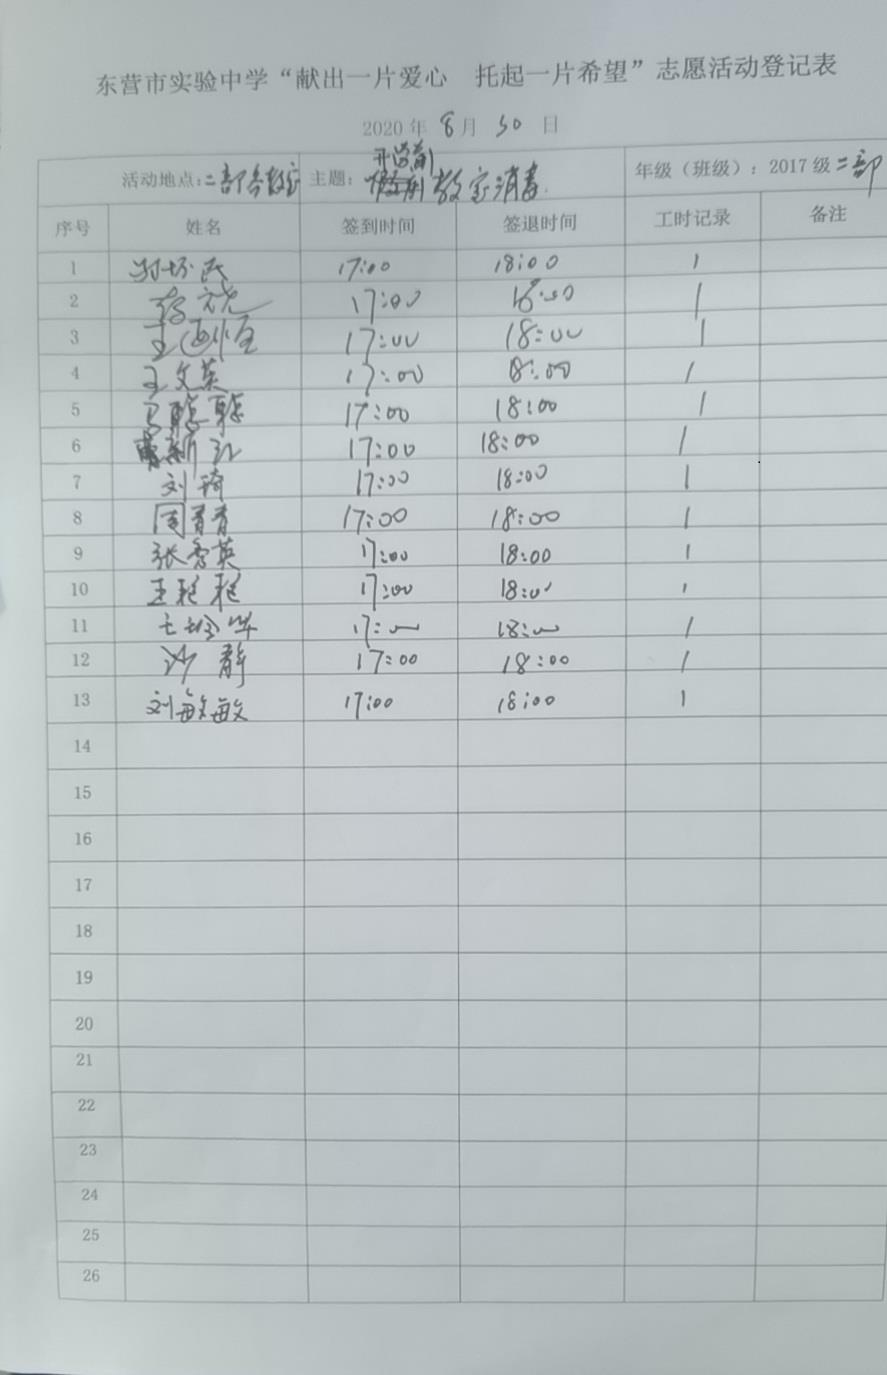 东营市实验中学“献出一片爱心 托起一片希望”志愿活动登记表
2020 年 8 月 30 日
活动地点:二部各教室 主题: 开学前 教室消毒 年级(班级):2017 级二部
序号 姓名 签到时间 签退时间 工时记录 备注
1 民 17:00 18:00 1
2 17:00 18:00 1
3 王 17:00 18:00 1
4 王文英 17:00 18:00 1
5 马聪聪 17:00 18:00 1
6 曹新江 17:00 18:00 1
7 刘琦 17:00 18:00 1
8 周青青 17:00 18:00 1
9 张秀英 17:00 18:00 1
10 王艇艇 17:00 18:00 1
11 17:00 18:00 1
12 沙静 17:00 18:00 1
13 刘敏敏 17:00 18:00 1
14
15
16
17
18
19
20
21
22
23
24
25
26